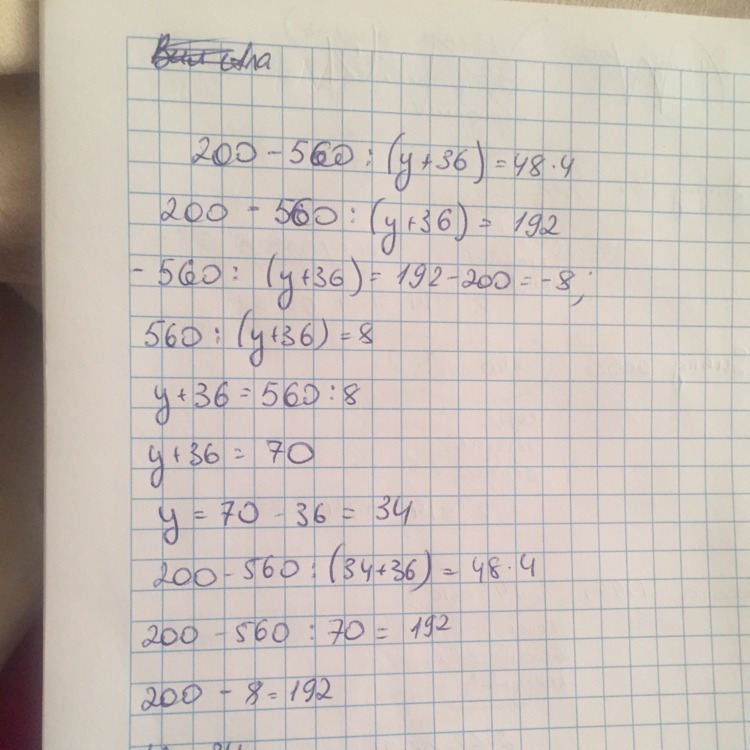 200 - 560 : (y+36) = 48·4
200 - 560 : (y+36) = 192
- 560 : (y+36) = 192 - 200 = -8;
560 : (y+36) = 8
y + 36 = 560 : 8
y + 36 = 70
y = 70 - 36 = 34
200 - 560 : (34+36) = 48·4
200 - 560 : 70 = 192
200 - 8 = 192